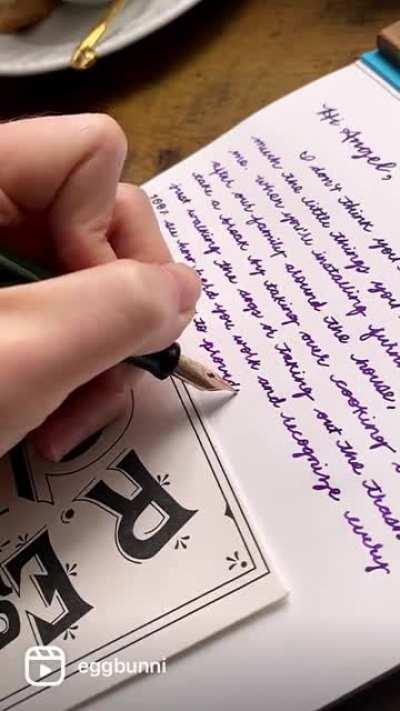 Hi Angel,
I don't think you
much the little things you
me. When you're installing furn
after our family around the house,
take a break by taking over cooking
walking the dogs or taking out the trash
see how hard you work and recognize every
to
R
E
eggbunni